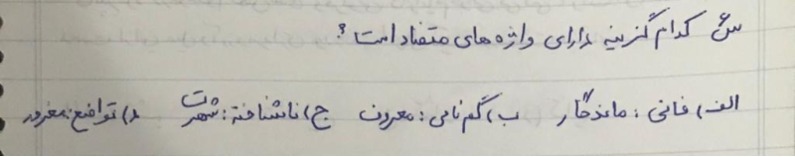 س۶ کدام گزینه دارای واژه های متضاد است؟
الف) فانی : ماندگار ب) گم نامی : معروف ج) ناشناخته : شهرت د) تواضع : مغرور